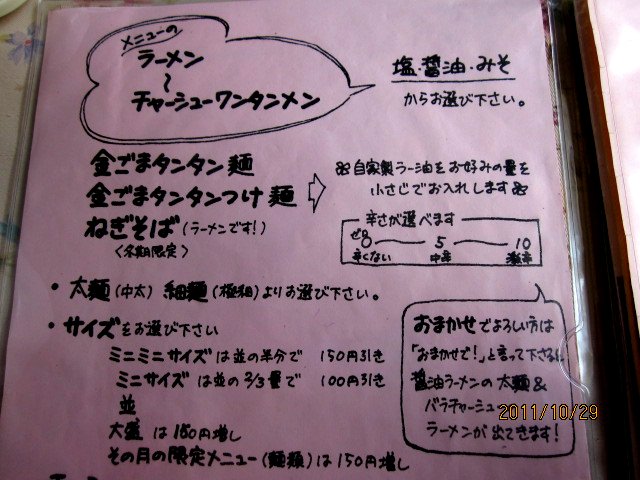 メニューの
ラーメン
～
チャーシューワンタンメン
塩・醤油・みそ
からお選び下さい。
金ごまタンタン麺
金ごまタンタンつけ麺
ねぎそば(ラーメンです!)
〈冬期限定〉
自家製ラー油をお好みの量を
小さじでお入れします
辛さが選べます
ゼロ 5 10
辛くない 中辛 激辛
・太麺(中太) 細麺(極細)よりお選び下さい。
・サイズをお選び下さい
ミニミニサイズは並の半分で 150円引き
ミニサイズは並の2/3量で 100円引き
並
大盛は150円増し
その月の限定メニュー(麺類)は150円増し
おまかせでよろしい方は
「おまかせで!」と言って下さい
醤油ラーメンの太麺&
バラチャーシュー
ラーメンが出てきます!
2011/10/29